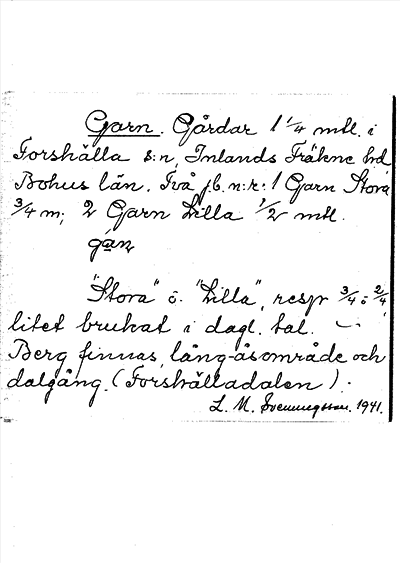 Garn. Gårdar 1 1/4 mtl. i
Forshälla s:n, Inlands Fräkne hd,
Bohus län. Två jb. n:r: 1 Garn Stora
3/4 m; 2 Garn Lilla 1/2 mtl.
"Stora" o. "Lilla", resp 3/4 o 2/4,
litet brukat i dagl. tal.
Berg finnas, lång-åsområde och
dalgång. (Forshälladalen).
L. M. Svenungsson. 1941.